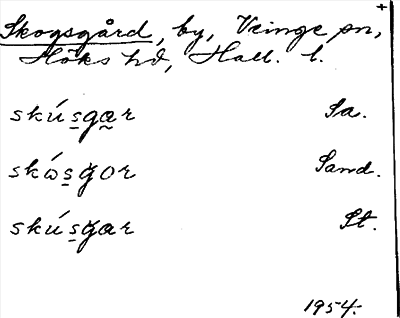 Skogsgård, by, Veinge sn,
Höks hd, Hall. l.
skú̱sga̰r Sa.
skɷ́s̱ǧor Sand.
skús̱ǧar St.
1954.